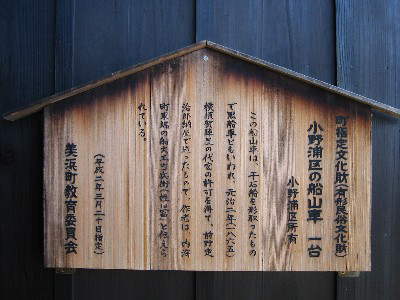 町指定文化財(有形民俗文化財)
小野浦区の船山車 一台
小野浦区所有
この船山車は、千石船を形取ったもの
で黒船車ともいわれ、元治二年(一八六五)
横須賀陣屋の代官の許可を得て、前野定
治郎納屋で造ったもので、作者は、内海
町東端の船大工
と伝えら
れている。
(平成二年三月二十日指定)
美浜町教育委員会